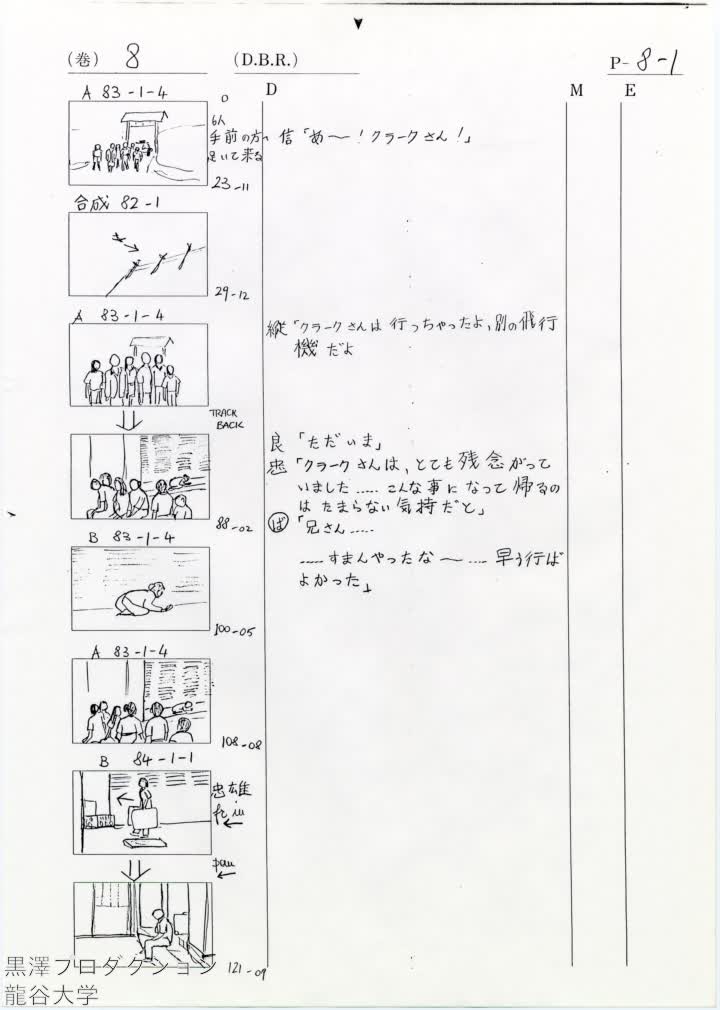 (巻) 8 (D.B.R.) P-8-1
D M E
A 83-1-4
0
6人
手前の方へ
歩いて来る
信「あ〜！クラークさん！」
23-11
合成 82-1
29-12
A 83-1-4
縦「クラークさんは 行っちゃったよ、別の飛行
機だよ
TRACK
BACK
良「ただいま」
忠「クラークさんは、とても残念がって
いました……こんな事になって帰るの
は たまらない気持だと」
ば「兄さん……
……すまんやったな〜……早う行けば
よかった」
88-02
B 83-1-4
100-05
A 83-1-4
108-08
B 84-1-1
忠雄
fr in
pan
121-09
黒澤プロダクション
龍谷大学